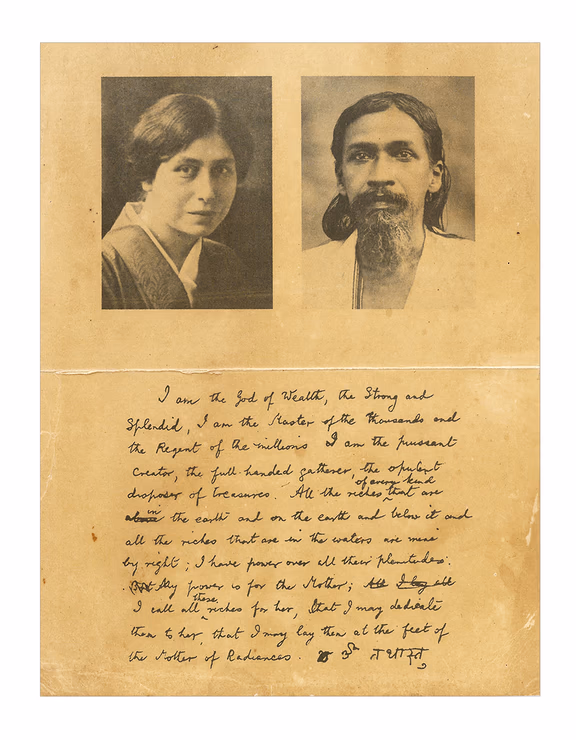 I am the God of Wealth, the Strong and
Splendid, I am the Master of the thousands and
the Regent of the millions I am the puissant
Creator, the full-handed gatherer, the opulent
disposer of treasures. All the riches of every kind that are
in the earth and on the earth and below it and
all the riches that are in the waters are mine
by right; I have power over all their plenitudes.
My power is for the Mother;
I call all these riches for her, that I may dedicate
them to her, that I may lay them at the feet of
the Mother of Radiances. ॐ